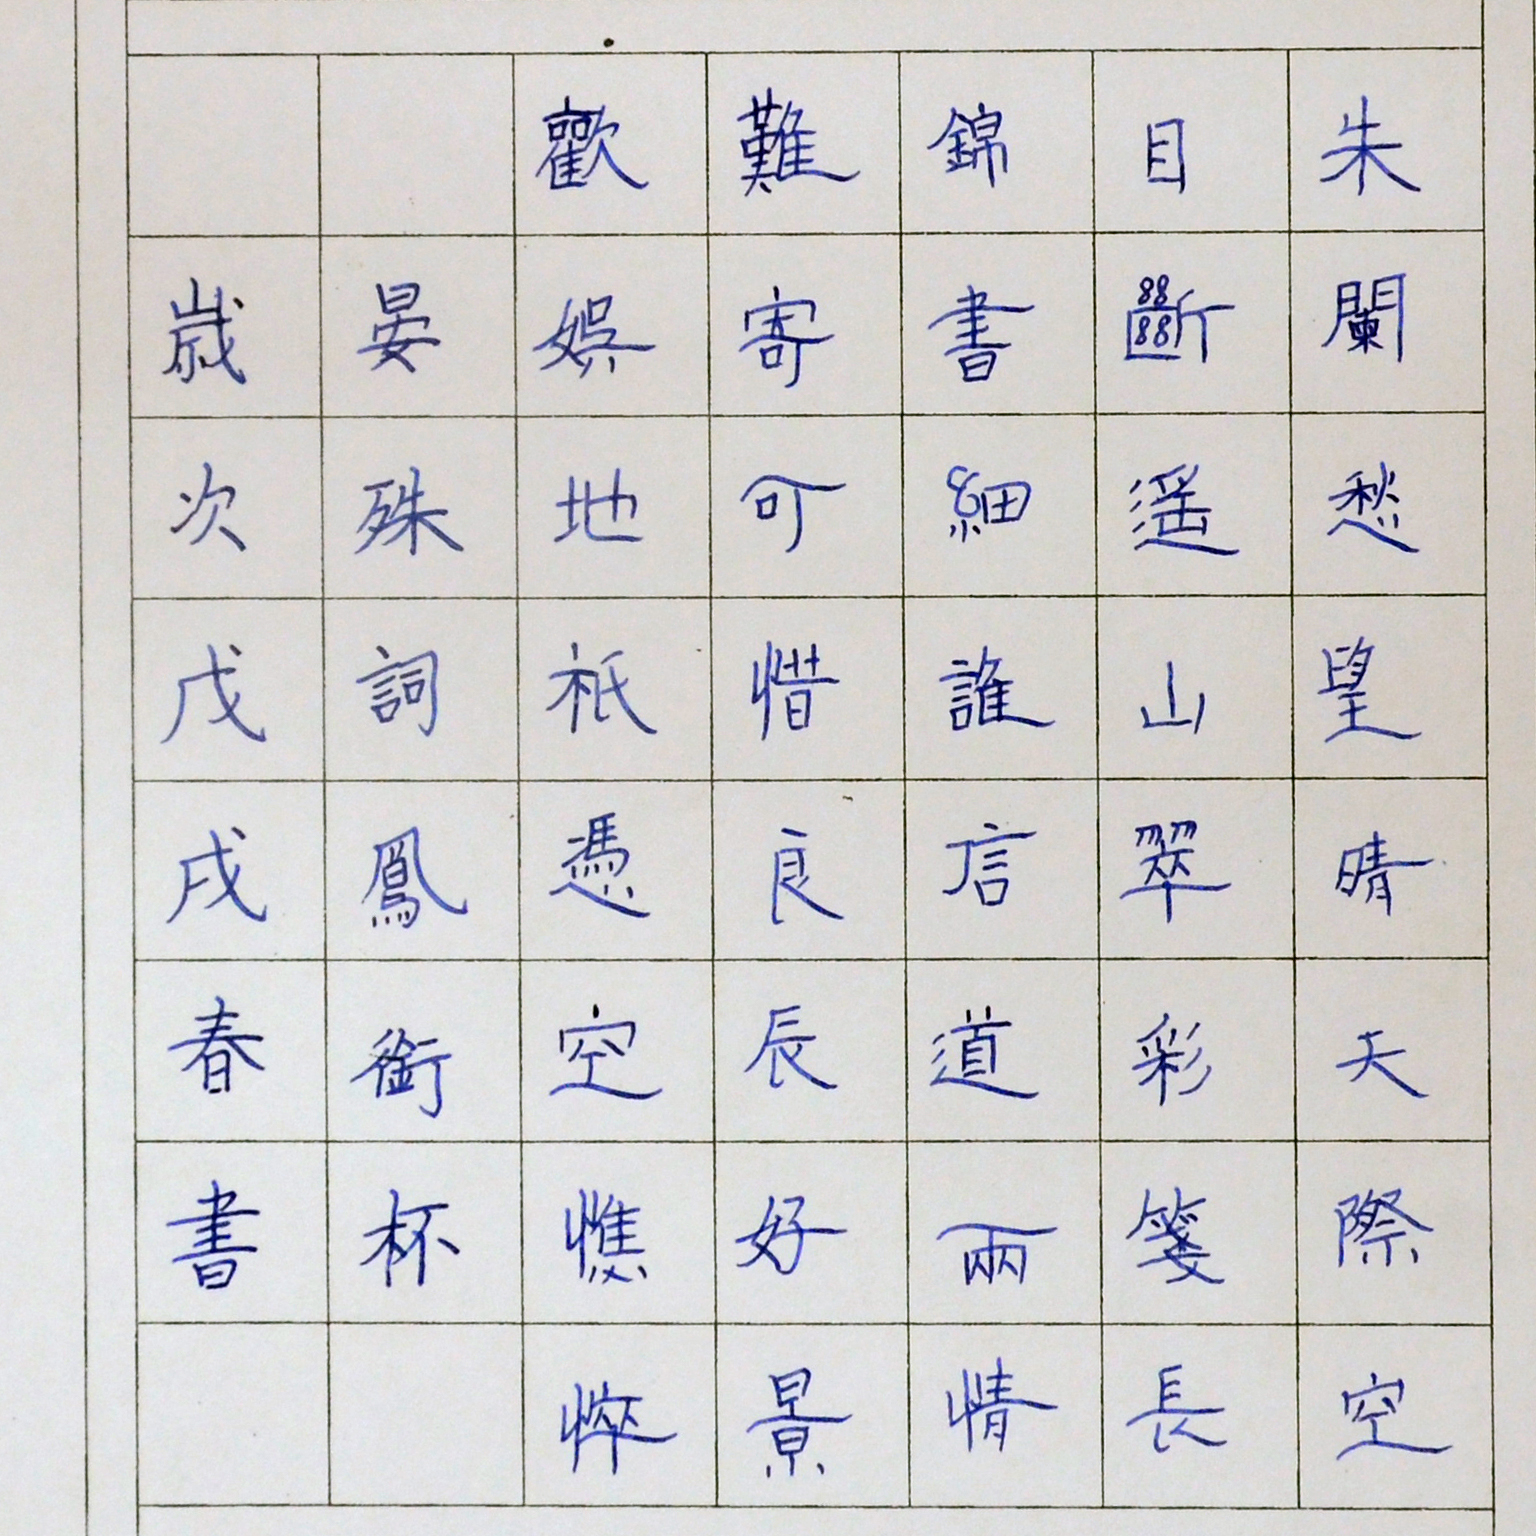 朱闌愁望晴天際空
目斷遥山翠彩箋長
錦書細誰信道兩情
難寄可惜良辰好景
歡娛地衹憑空憔悴
晏殊詞鳳銜杯
歲次戊戌春書